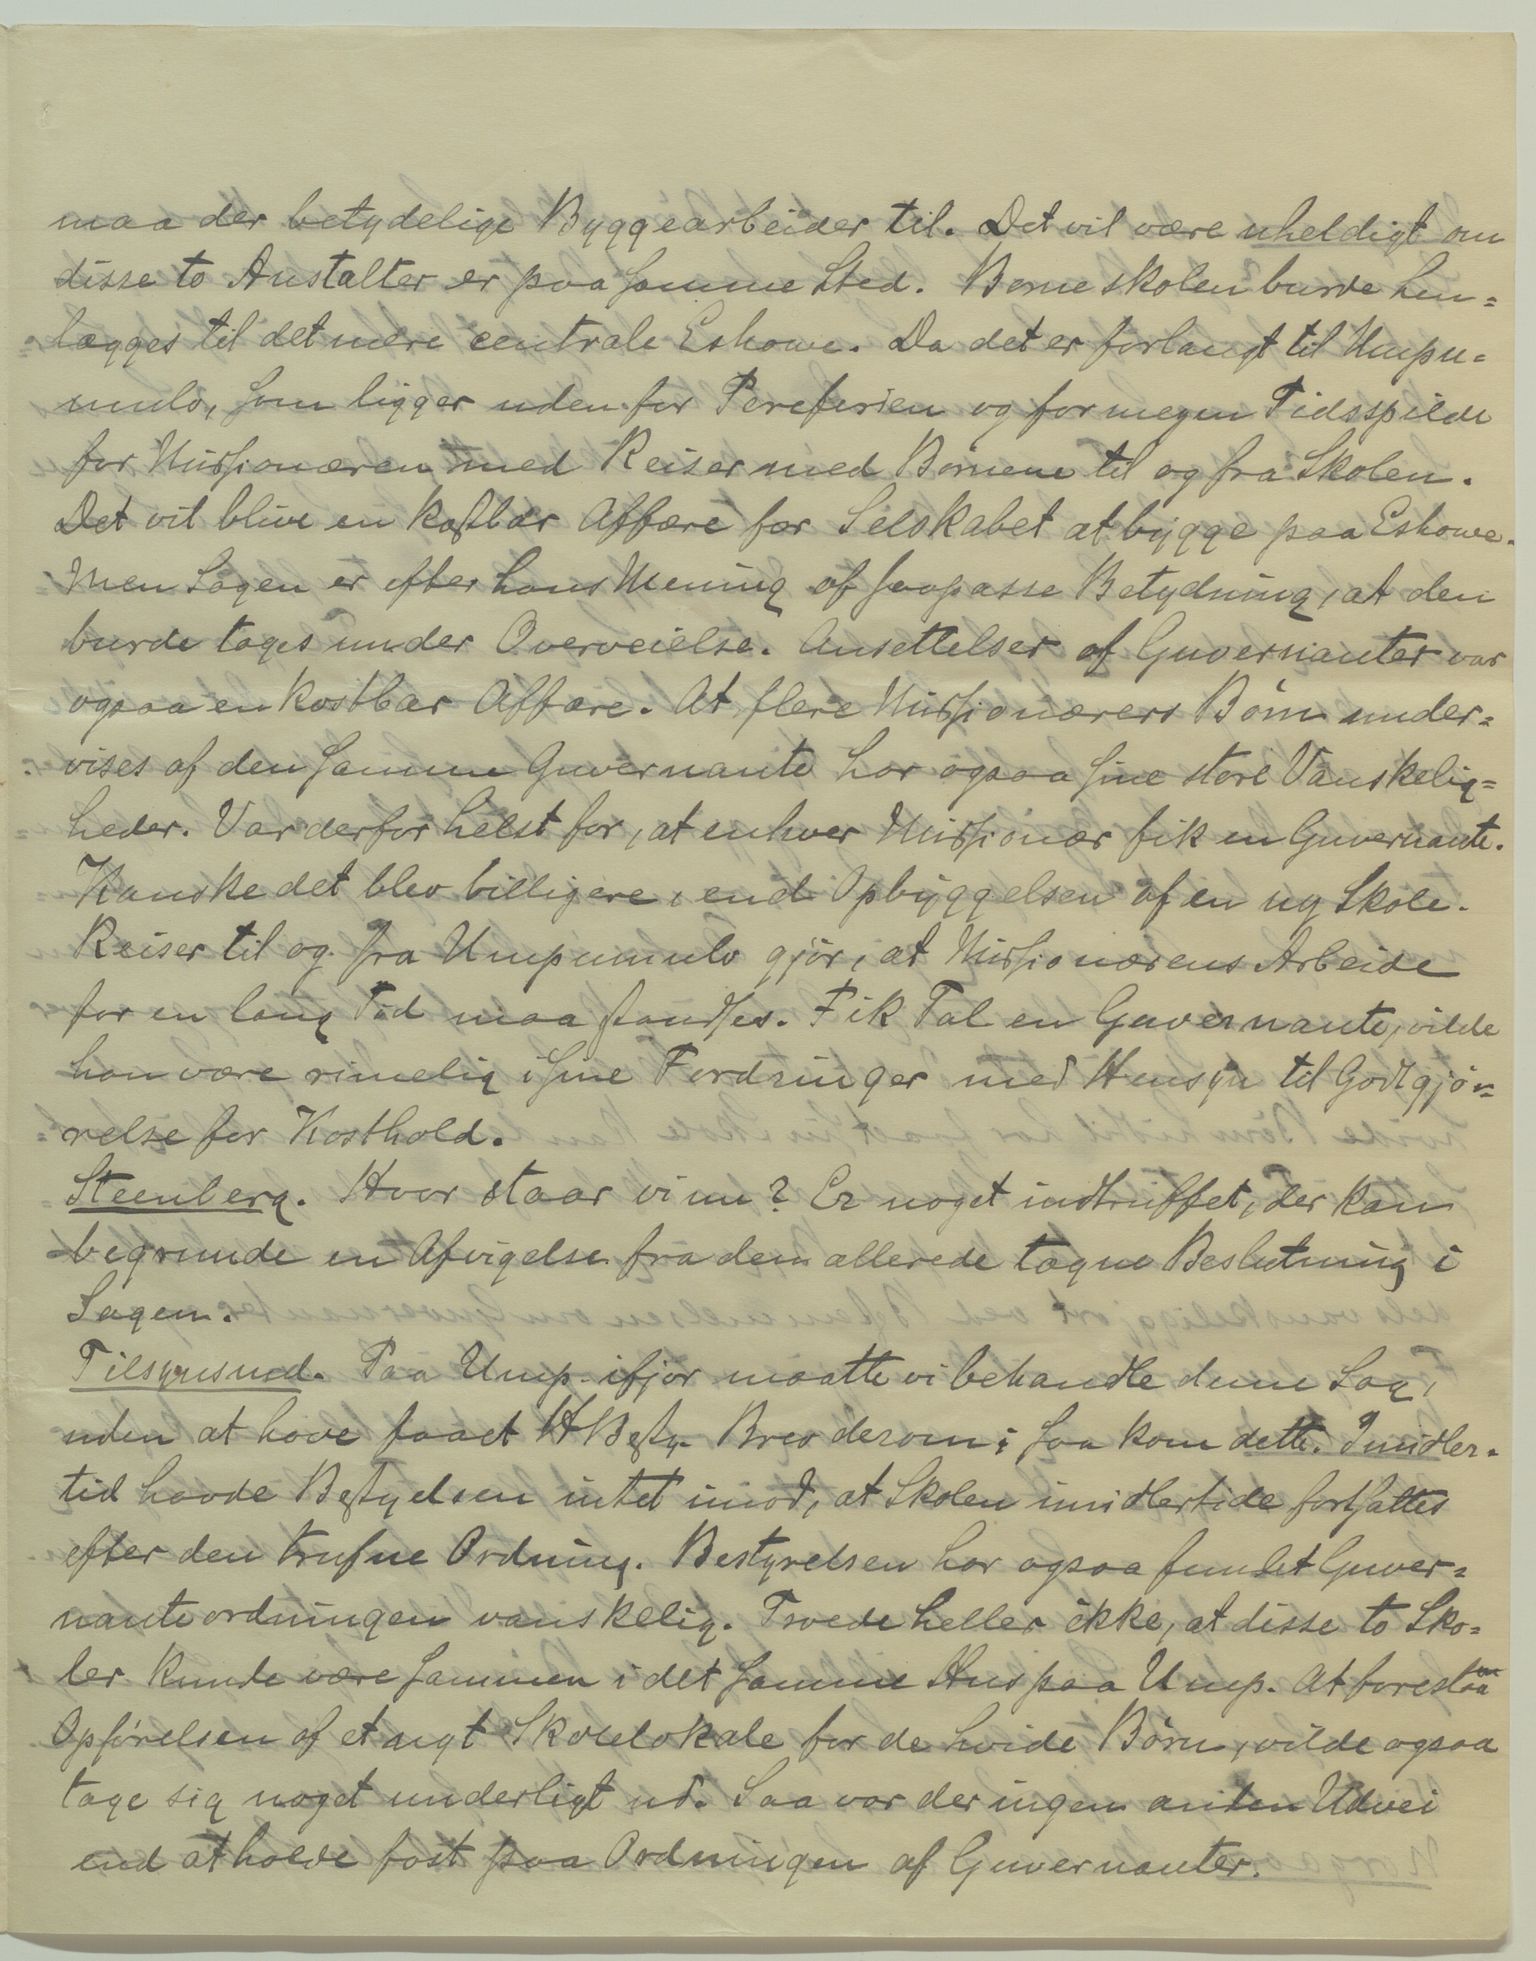 maa der betydelige Byggearbeider til. Det vil være uheldigt om
disse to Anstalter er paa samme Sted. Børneskolen burde hen=
lægges til det mere centrale Eshowe. Da det er forlangt til Umpu=
mulo, som ligger uden for Pereferien og for megen Tidsspilde
for Missionæren med Reiser med Børnene til og fra Skolen.
Det vil blive en kostbar Affære for Selskabet at bygge paa Eshowe.
Men Sagen er efter hans Mening af saapasse Betydning, at den
burde tages under Overveielse. Ansettelser af Guvernanter var
ogsaa en kostbar Affære. At flere Missionærers Børn under=
vises af den samme Guvernante har ogsaa sine store Vanskelig=
heder. Var derfor helst for, at enhver Missionær fik en Guvernante.
Kanske det blev billigere, end Opbyggelsen af en ny Skole.
Reiser til og fra Umpumulo gjör, at Missionærens Arbeide
for en lang Tid maa standses. Fik Tal en Guvernante, vilde
han være rimelig i sine Fordringer med Hensyn til Godtgjö=
relse for Kosthold.
Steenberg. Hvor staar vi nu? Er noget indtruffet, der kan
begrunde en Afvigelse fra dem allerede tagne Beslutning i
Sagen.
Tilsynsmd. Paa Ump. ifjor maatte vi behandle denne Sag,
uden at have faaet HBsty. Brev derom; saa kom dette. Imidler=
tid havde Bestyelsen intet imod, at Skolen imidlertide fortsattes
efter den trufne Ordning. Bestyrelsen har ogsaa fundet Guver=
nanteordningen vanskelig. Troede heller ikke, at disse to Sko=
ler kunde være sammen i det samme Hus paa Ump. At forestaa
Opførelsen af et nyt Skolelokale for de hvide Børn, vilde ogsaa
tage sig noget underligt ud. Saa var der ingen anden Udvei
end at holde fast paa Ordningen af Guvernanter.